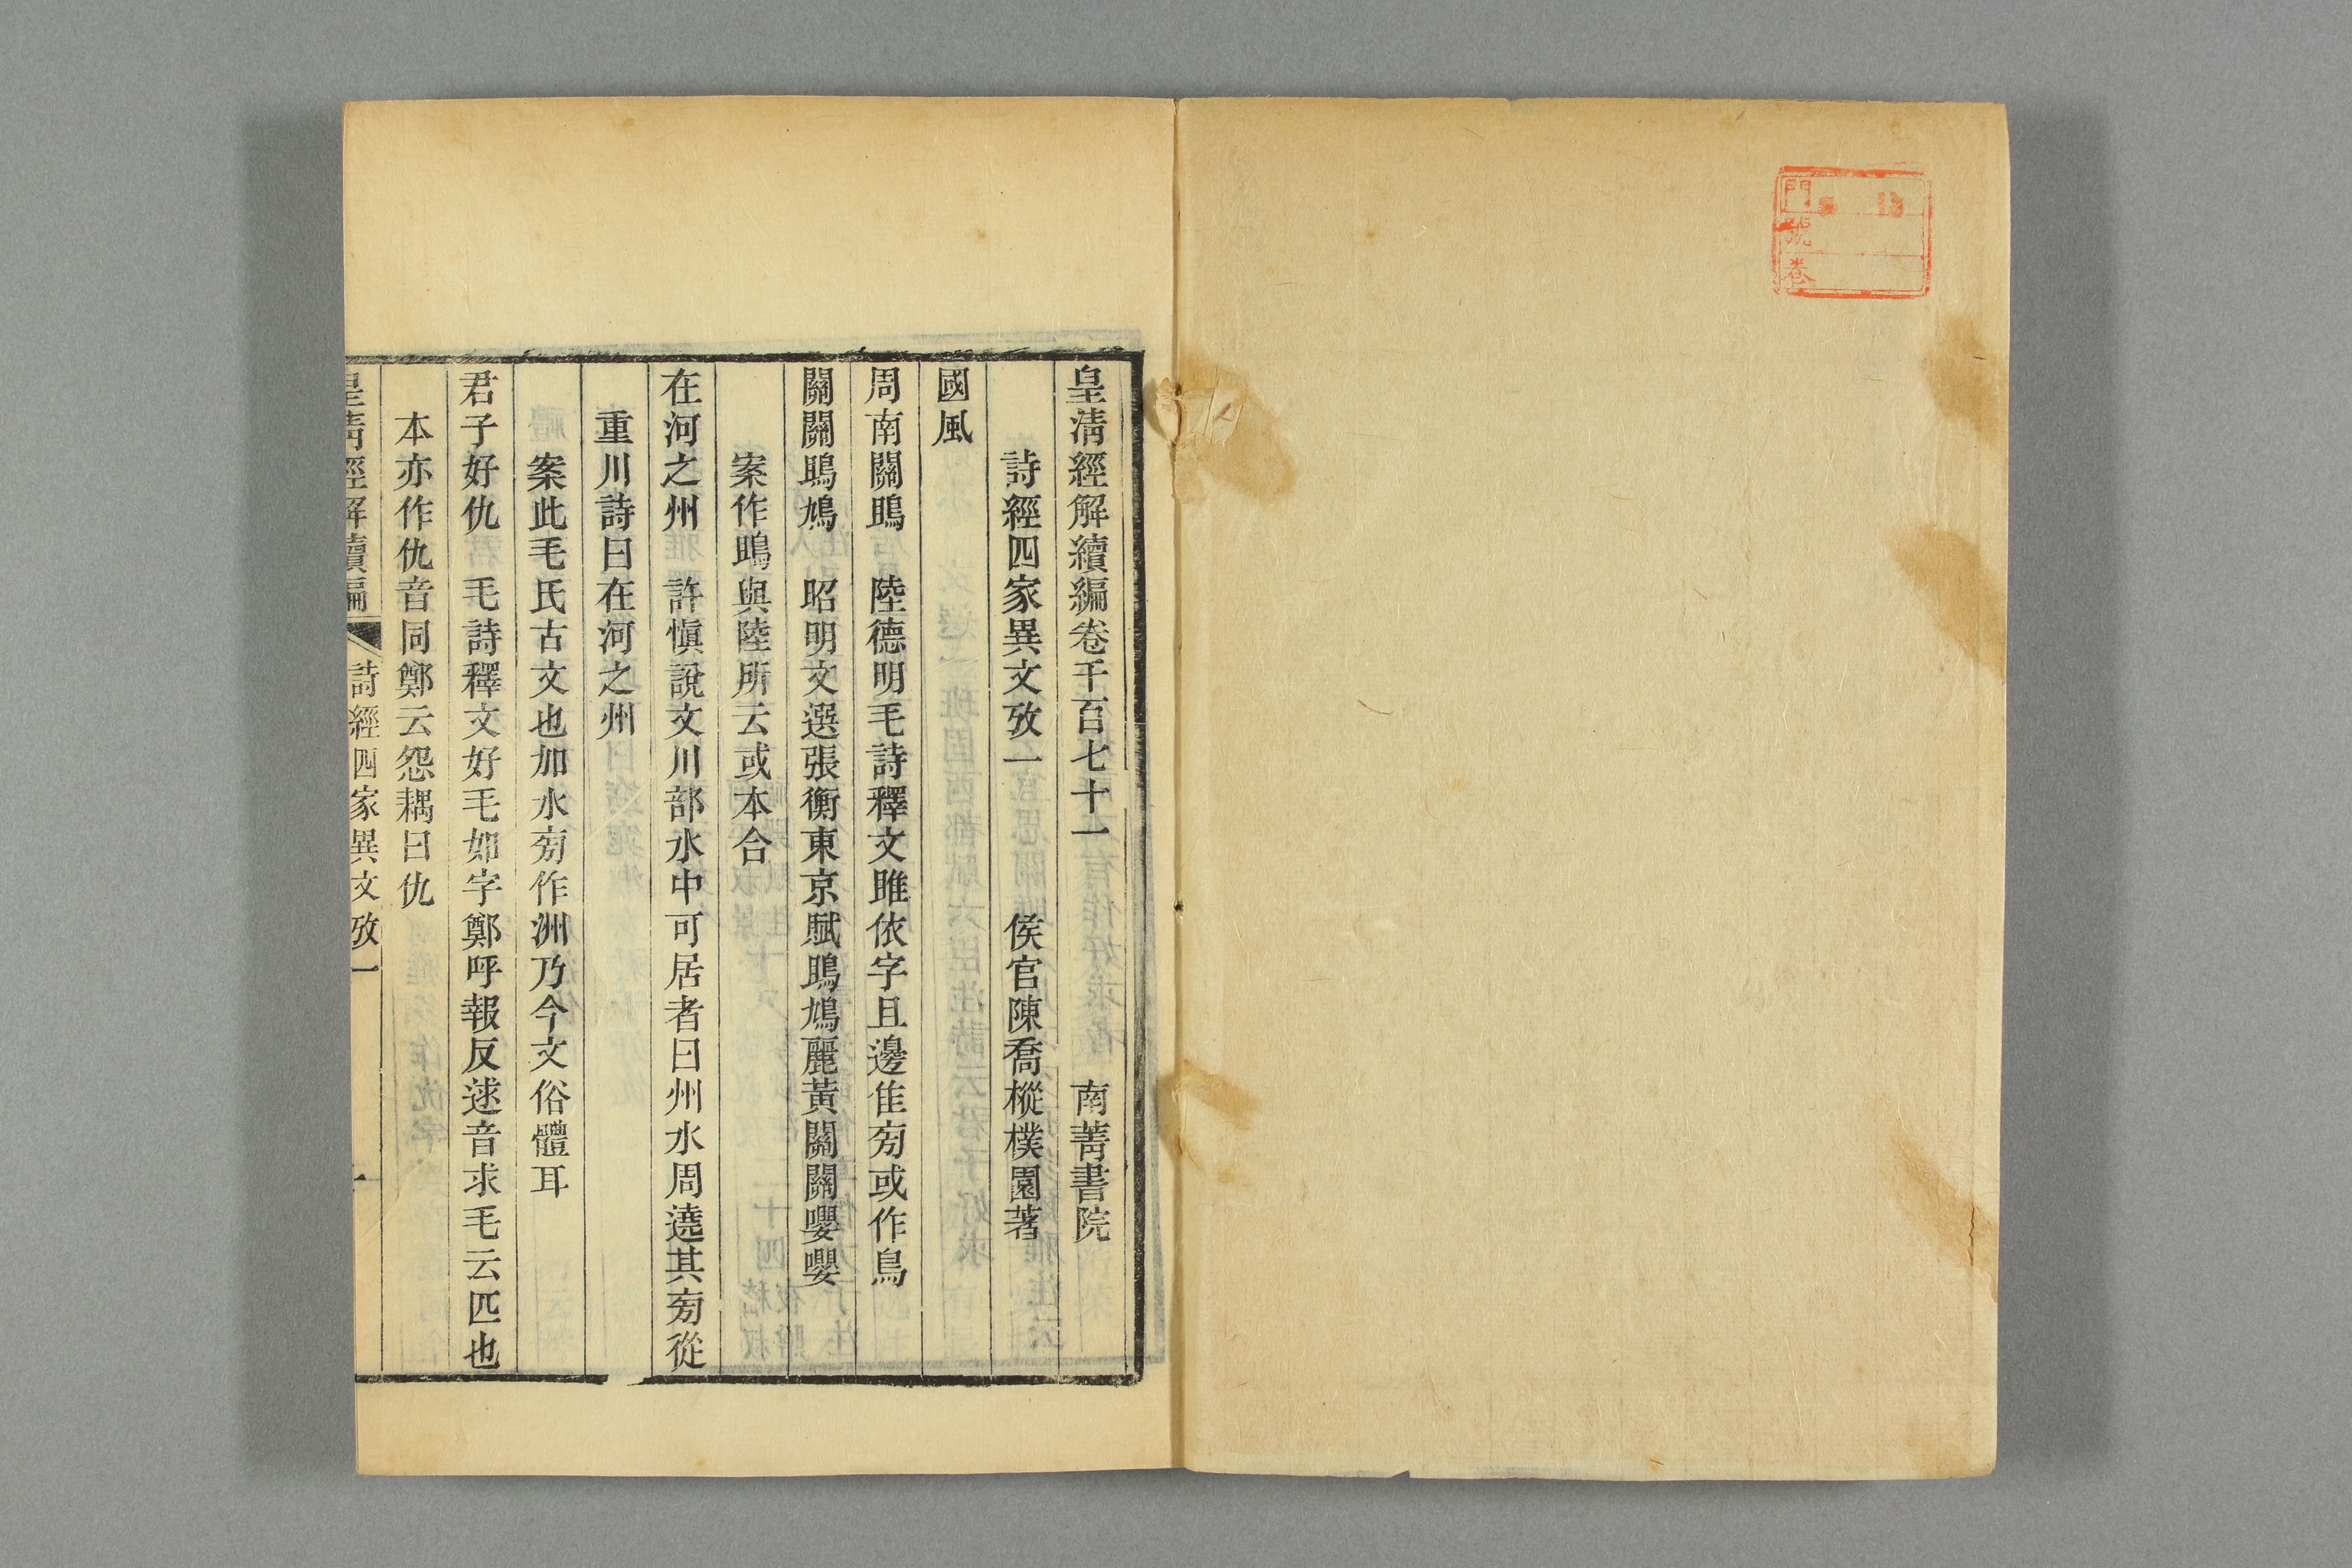 門
號
卷
皇清經解續編卷千百七十一　南菁書院
詩經四家異文攷一　侯官陳喬樅樸園著
國風
周南關鴡　陸德明毛詩釋文雎依字且邊隹旁或作鳥
關關鴡鳩　昭明文選張衡東京賦鴡鳩麗黃關關嚶嚶
案作鴡與陸所云或本合
在河之州　許愼說文川部水中可居者曰州水周遶其旁從
重川詩曰在河之州
案此毛氏古文也加水旁作洲乃今文俗體耳
君子好仇　毛詩釋文好毛如字鄭呼報反逑音求毛云匹也
本亦作仇音同鄭云怨耦曰仇
皇清經解續編　詩經四家異文攷一　一